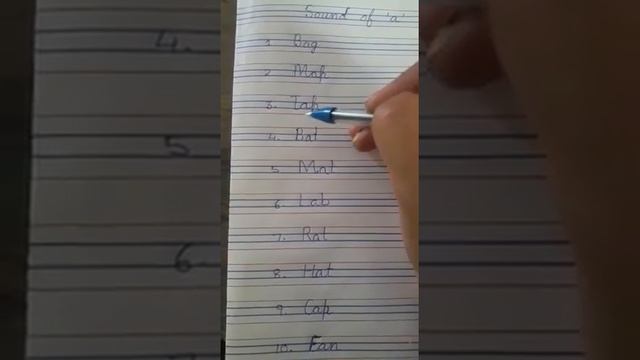 Sound of 'a'
1. Bag
2. Map
3. Tap
4. Bat
5. Mat
6. Lab
7. Rat
8. Hat
9. Cap
10. Fan
4.
5
6.